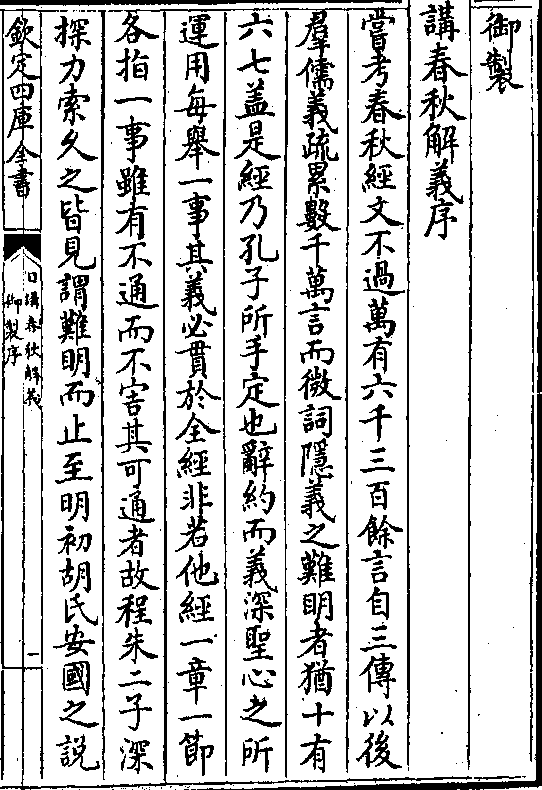 御製
講春秋解義序
嘗考春秋經文不過萬有六千三百餘言自三傳以後
羣儒義疏累數千萬言而微詞隱義之難明者猶十有
六七盖是經乃孔子所手定也辭約而義深聖心之所
運用每舉一事其義必貫於全經非若他經一章一節
各指一事雖有不通而不害其可通者故程朱二子深
探力索久之皆見謂難明而止至明初胡氏安國之說
欽定四庫全書
日講春秋解義
御製序
一